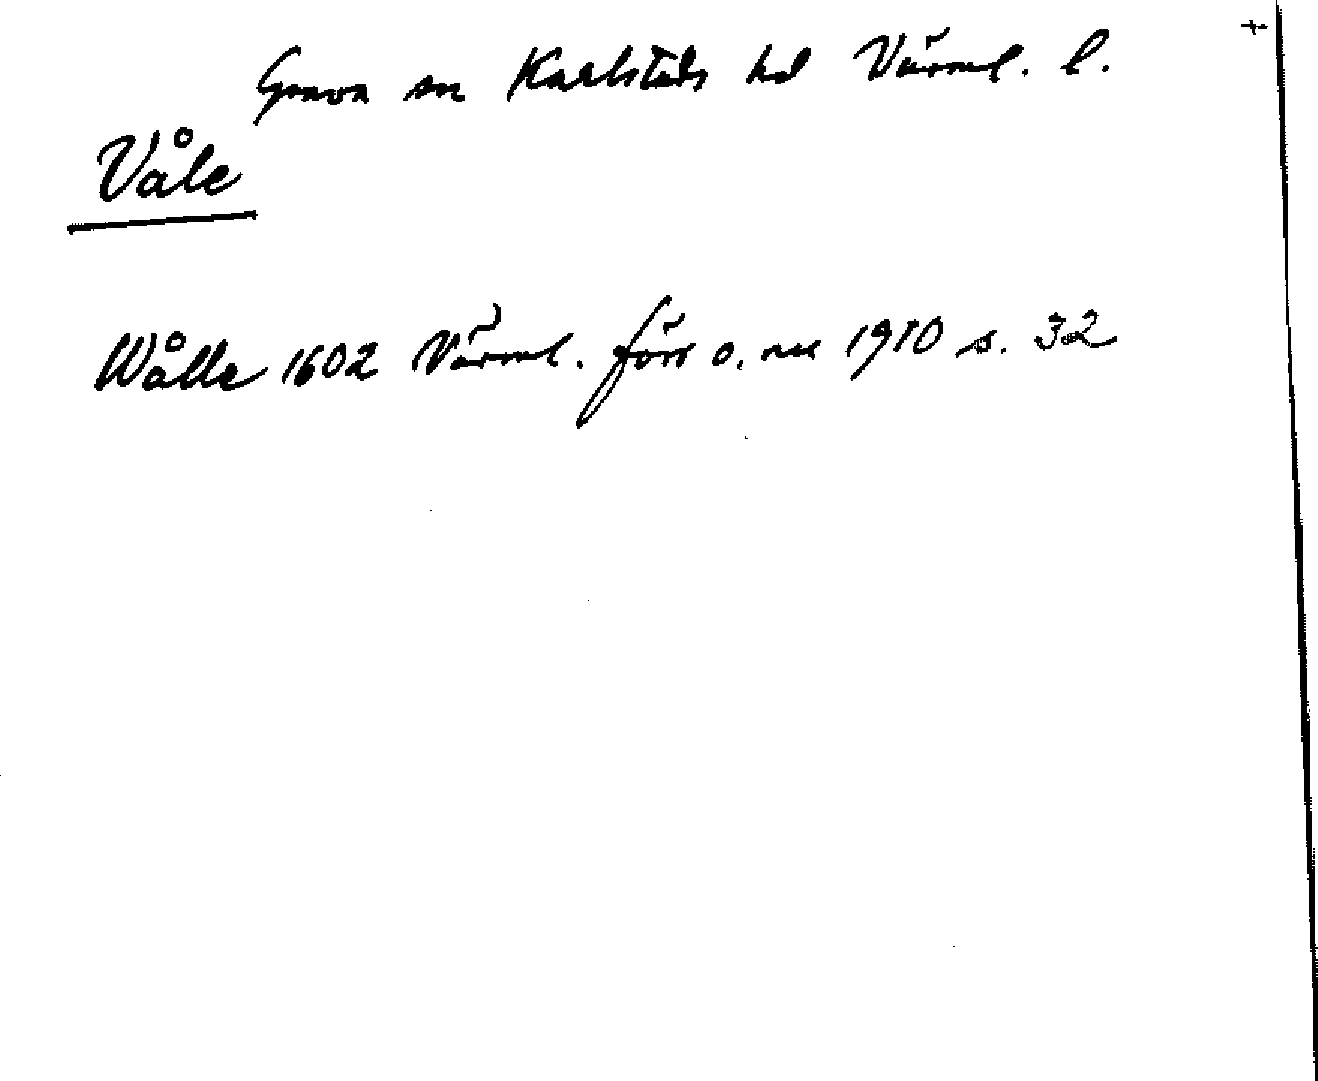 +
Grava sn Karlstads hd Värml. l.
Våle
Wålle 1602 Värml. förr o. nu 1910 s. 32